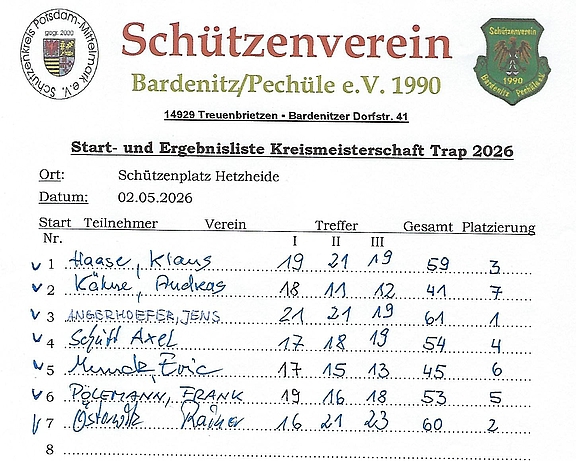 Schützenkreis Potsdam-Mittelmark e.V.
gegr. 2000
Schützenverein
Bardenitz/Pechüle e.V. 1990
Schützenverein
1990
Bardenitz Pechüle e.V.
14929 Treuenbrietzen - Bardenitzer Dorfstr. 41
Start- und Ergebnisliste Kreismeisterschaft Trap 2026
Ort: Schützenplatz Hetzheide
Datum: 02.05.2026
Start Teilnehmer Verein Treffer Gesamt Platzierung
Nr. I II III
1 Haase, Klaus 19 21 19 59 3
2 Kähne, Andreas 18 11 12 41 7
3 ANGERHOEFER, JENS 21 21 19 61 1
4 Axel 17 18 19 54 4
5 Eric 17 15 13 45 6
6 PÖLEMANN, FRANK 19 16 18 53 5
7 Rainer 16 21 23 60 2
8